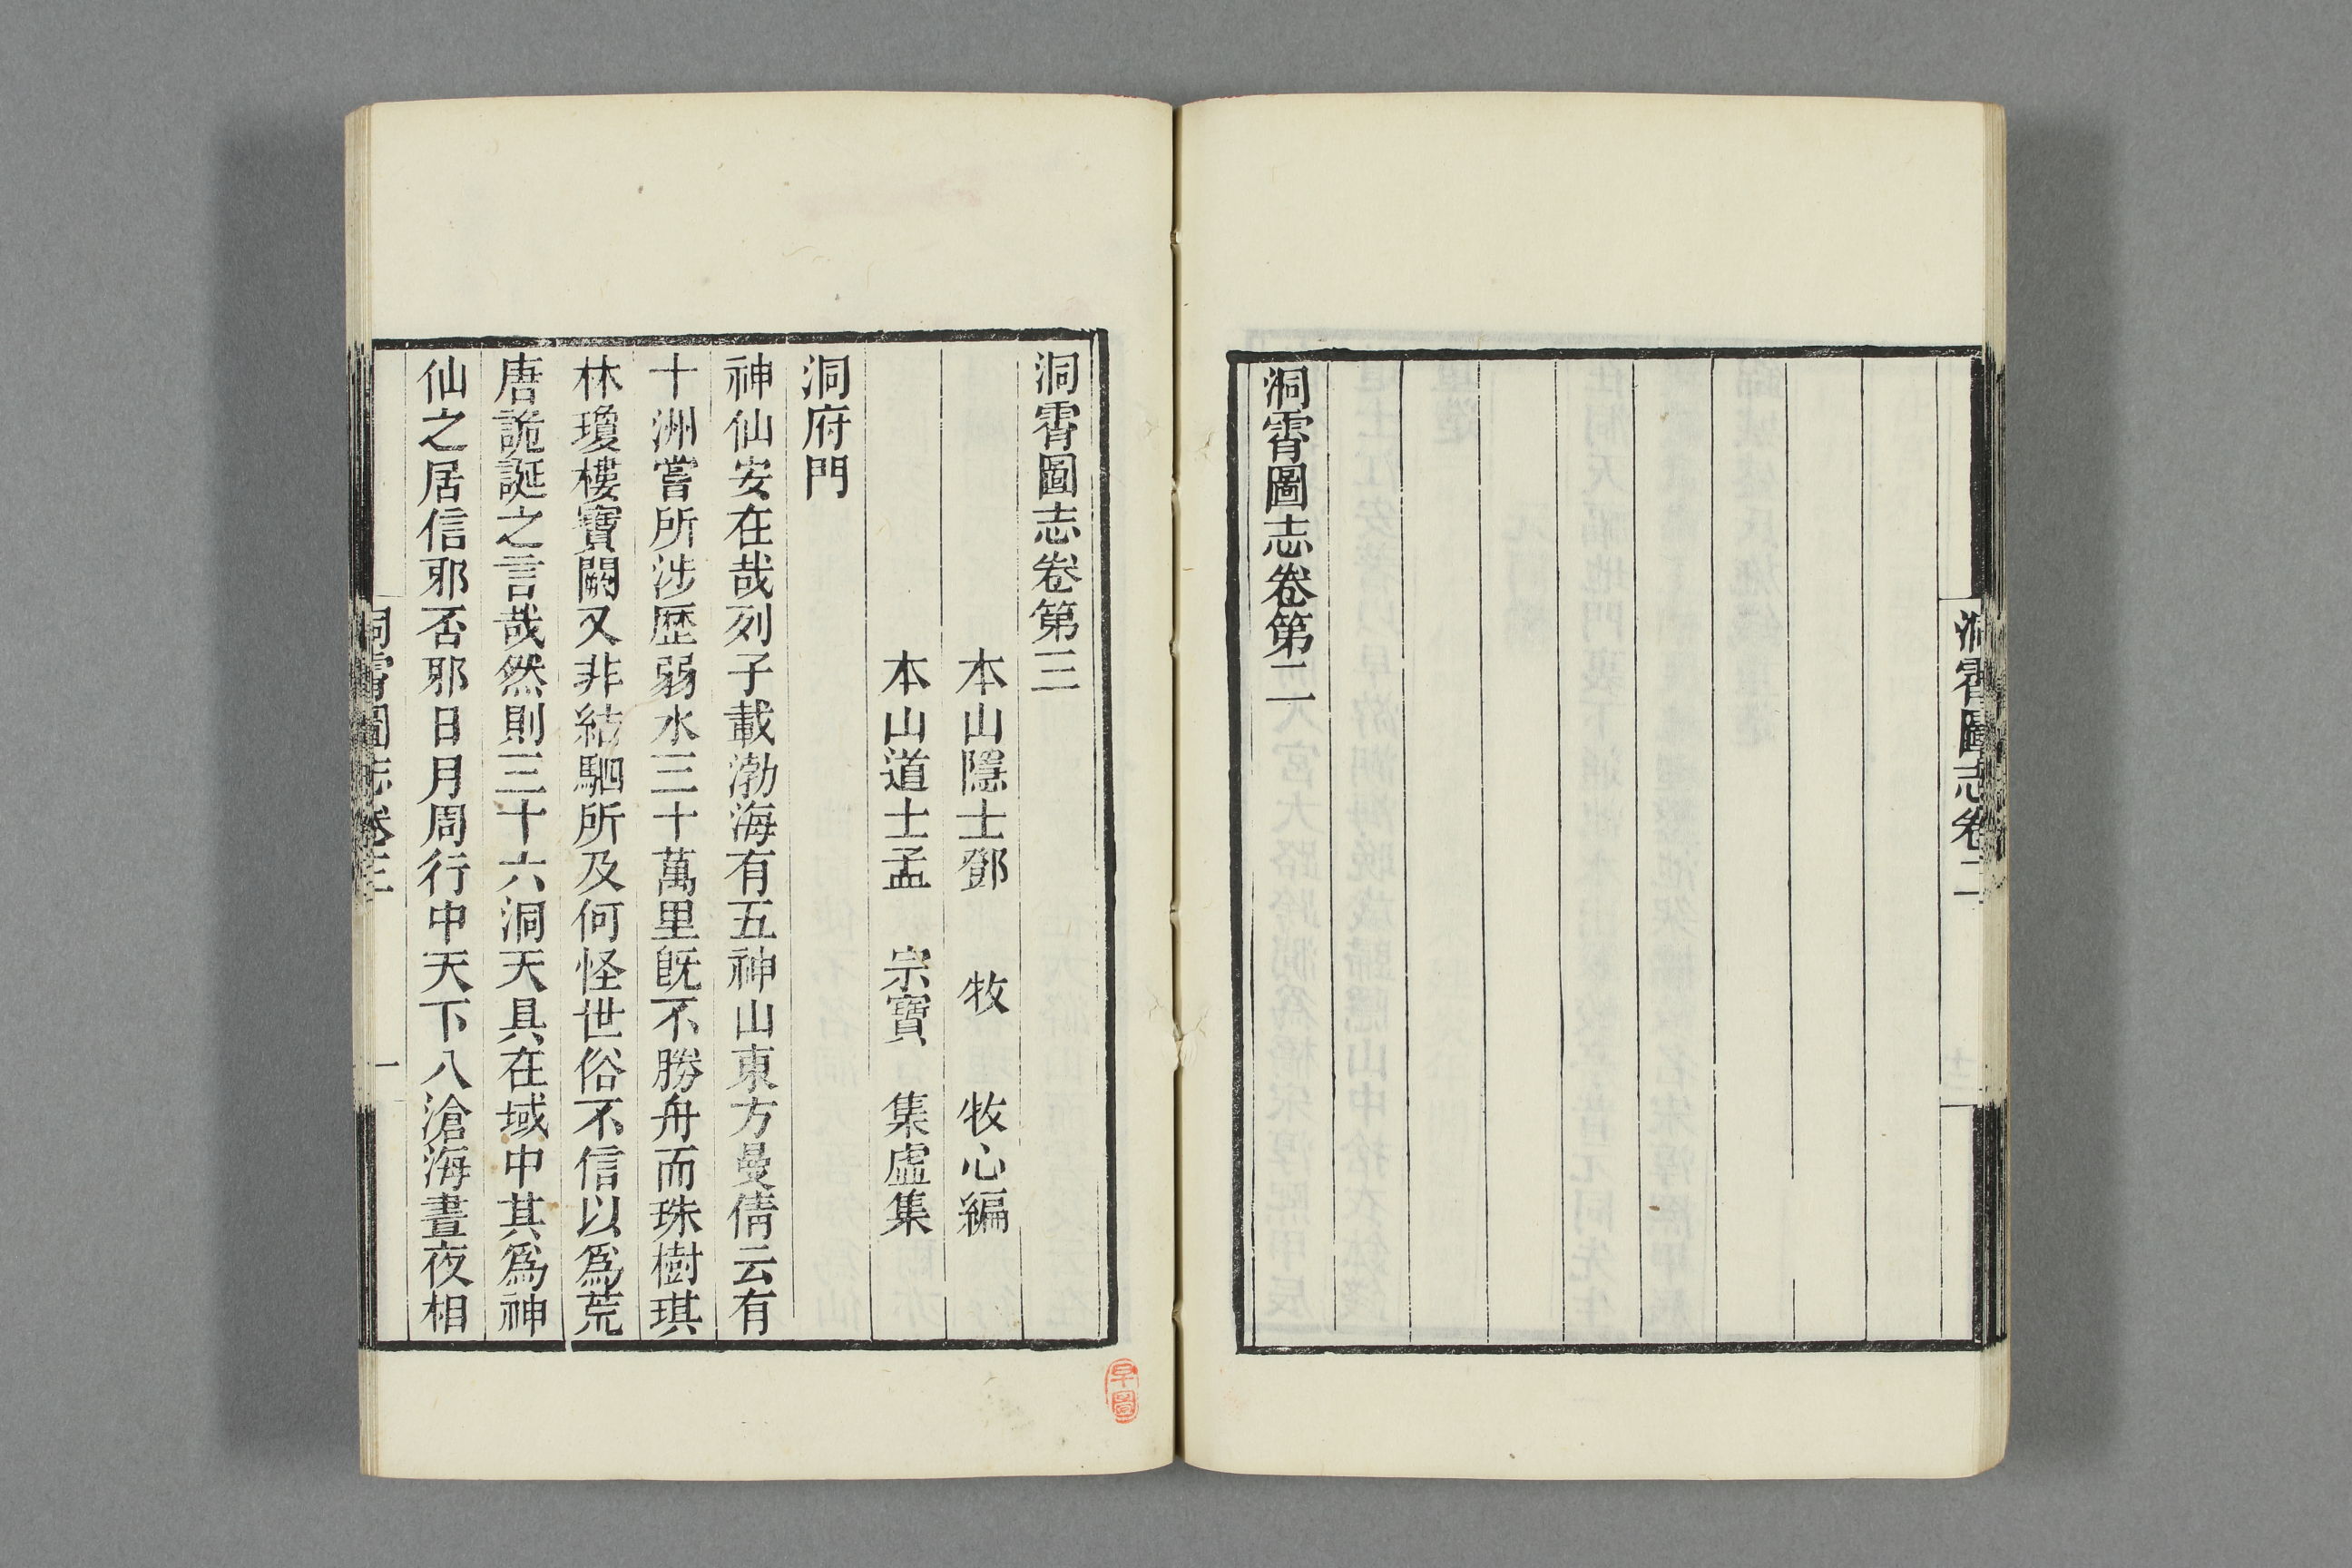 洞霄圖志卷二
洞霄圖志卷第二
洞霄圖志卷第三
本山隱士鄧　牧　牧心編
本山道士孟　宗寶　集虛集
洞府門
神仙安在哉列子載渤海有五神山東方曼倩云有
十洲嘗所涉歷弱水三十萬里旣不勝舟而珠樹琪
林瓊樓寶闕又非結駟所及何怪世俗不信以爲荒
唐詭誕之言哉然則三十六洞天具在域中其爲神
仙之居信邪否邪日月周行中天下八滄海晝夜相
洞霄圖志卷三
一
早圖